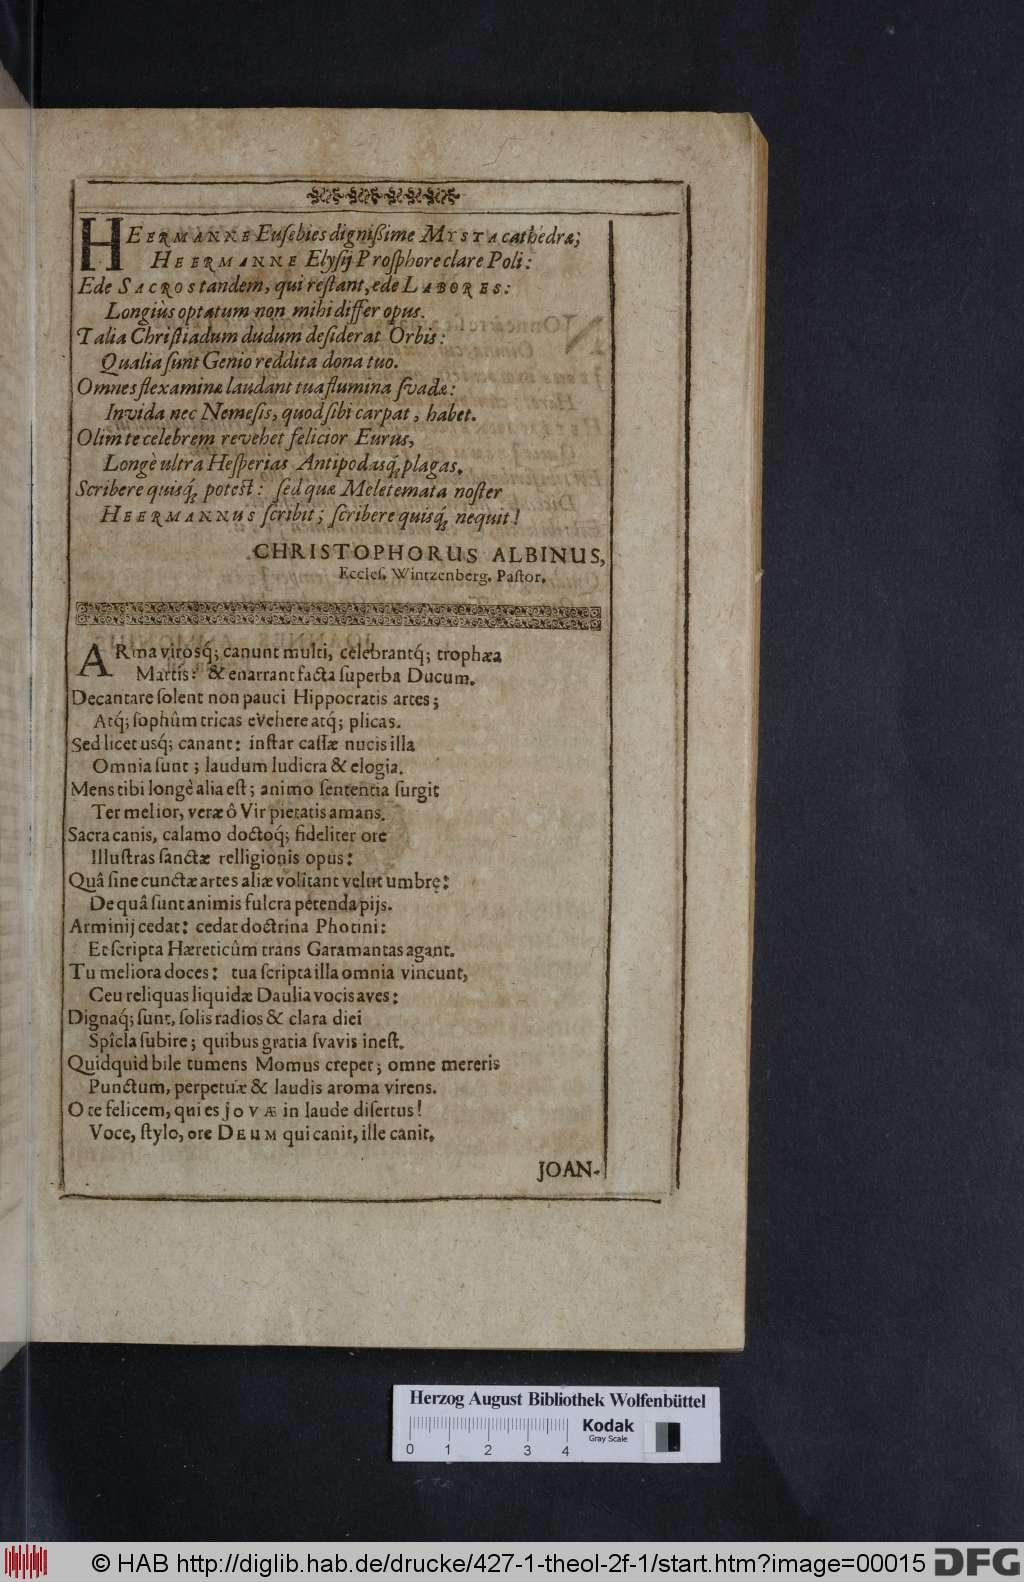 HEERMANNE Euſebies digniſſime MYSTA cathedræ;
HEERMANNE Elyſij Proſphore clare Poli:
Ede SACROS tandem, qui reſtant, ede LABORES:
Longiùs optatum non mihi differ opus.
Talia Chriſtiadum dudum deſiderat Orbis:
Qualia ſunt Genio reddita dona tuo.
Omnes flexaminæ laudant tua flumina ſvadæ:
Invida nec Nemeſis, quod ſibi carpat, habet.
Olim te celebrem revehet felicior Eurus,
Longè ultra Heſperias Antipodasq́; plagas.
Scribere quisq́; poteſt: ſed quæ Meletemata noſter
HEERMANNUS ſcribit; ſcribere quisq́; nequit!
CHRISTOPHORUS ALBINUS,
Eccleſ. Wintzenberg. Paſtor.
ARma virosq́; canunt multi, celebrantq́; trophæa
Martis: & enarrant facta ſuperba Ducum.
Decantare ſolent non pauci Hippocratis artes;
Atq́; ſophûm tricas evehere atq́; plicas.
Sed licet usq́; canant: inſtar caſſæ nucis illa
Omnia ſunt; laudum ludicra & elogia.
Mens tibi longè alia eſt; animo ſententia ſurgit
Ter melior, veræ ô Vir pietatis amans.
Sacra canis, calamo doctoq́; fideliter ore
Illuſtras ſanctæ relligionis opus:
Quâ ſine cunctæ artes aliæ volitant velut umbrę:
De quâ ſunt animis fulcra petenda pijs.
Arminij cedat: cedat doctrina Photini:
Et ſcripta Hæreticûm trans Garamantas agant.
Tu meliora doces: tua ſcripta illa omnia vincunt,
Ceu reliquas liquidæ Daulia vocis aves:
Dignaq́; ſunt, ſolis radios & clara diei
Spîcla ſubire; quibus gratia ſvavis ineſt.
Quidquid bile tumens Momus crepet; omne mereris
Punctum, perpetuæ & laudis aroma virens.
O te felicem, qui es joVÆ in laude diſertus!
Voce, ſtylo, ore DEUM qui canit, ille canit.
JOAN-
Herzog August Bibliothek Wolfenbüttel
0 1 2 3 4
Kodak
Gray Scale
© HAB http://diglib.hab.de/drucke/427-1-theol-2f-1/start.htm?image=00015
DFG